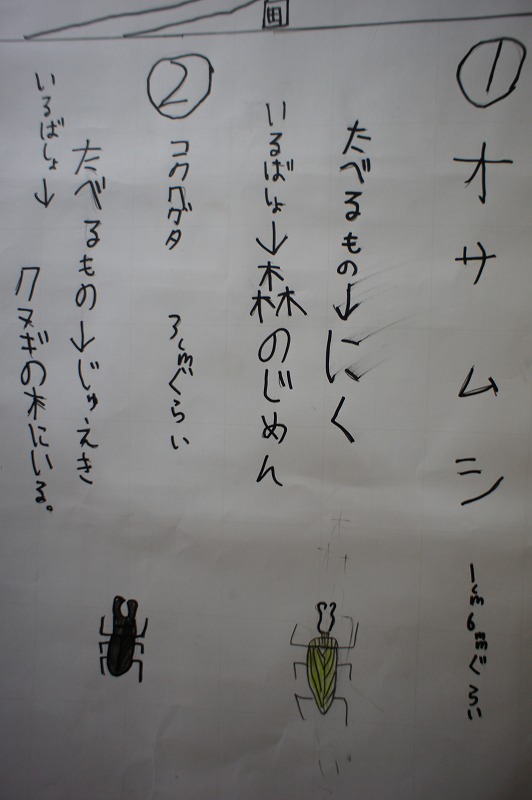 ①オサムシ 1cm6mmぐらい
たべるもの→にく
いるばしょ→森のじめん
②コクワガタ 3cmぐらい
たべるもの→じゅえき
いるばしょ→クヌギの木にいる。